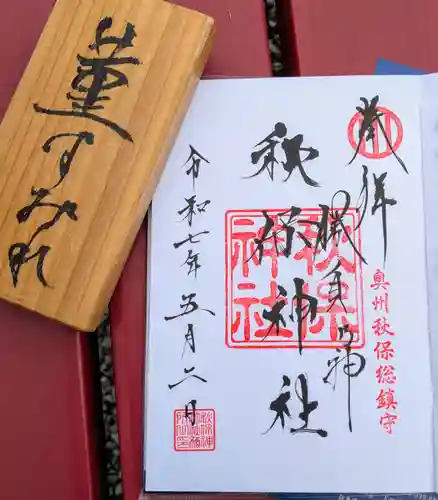 菫
すみれ
奉拝
奥州秋保総鎮守
勝負の神
秋保神社
秋保神社
令和七年五月六日